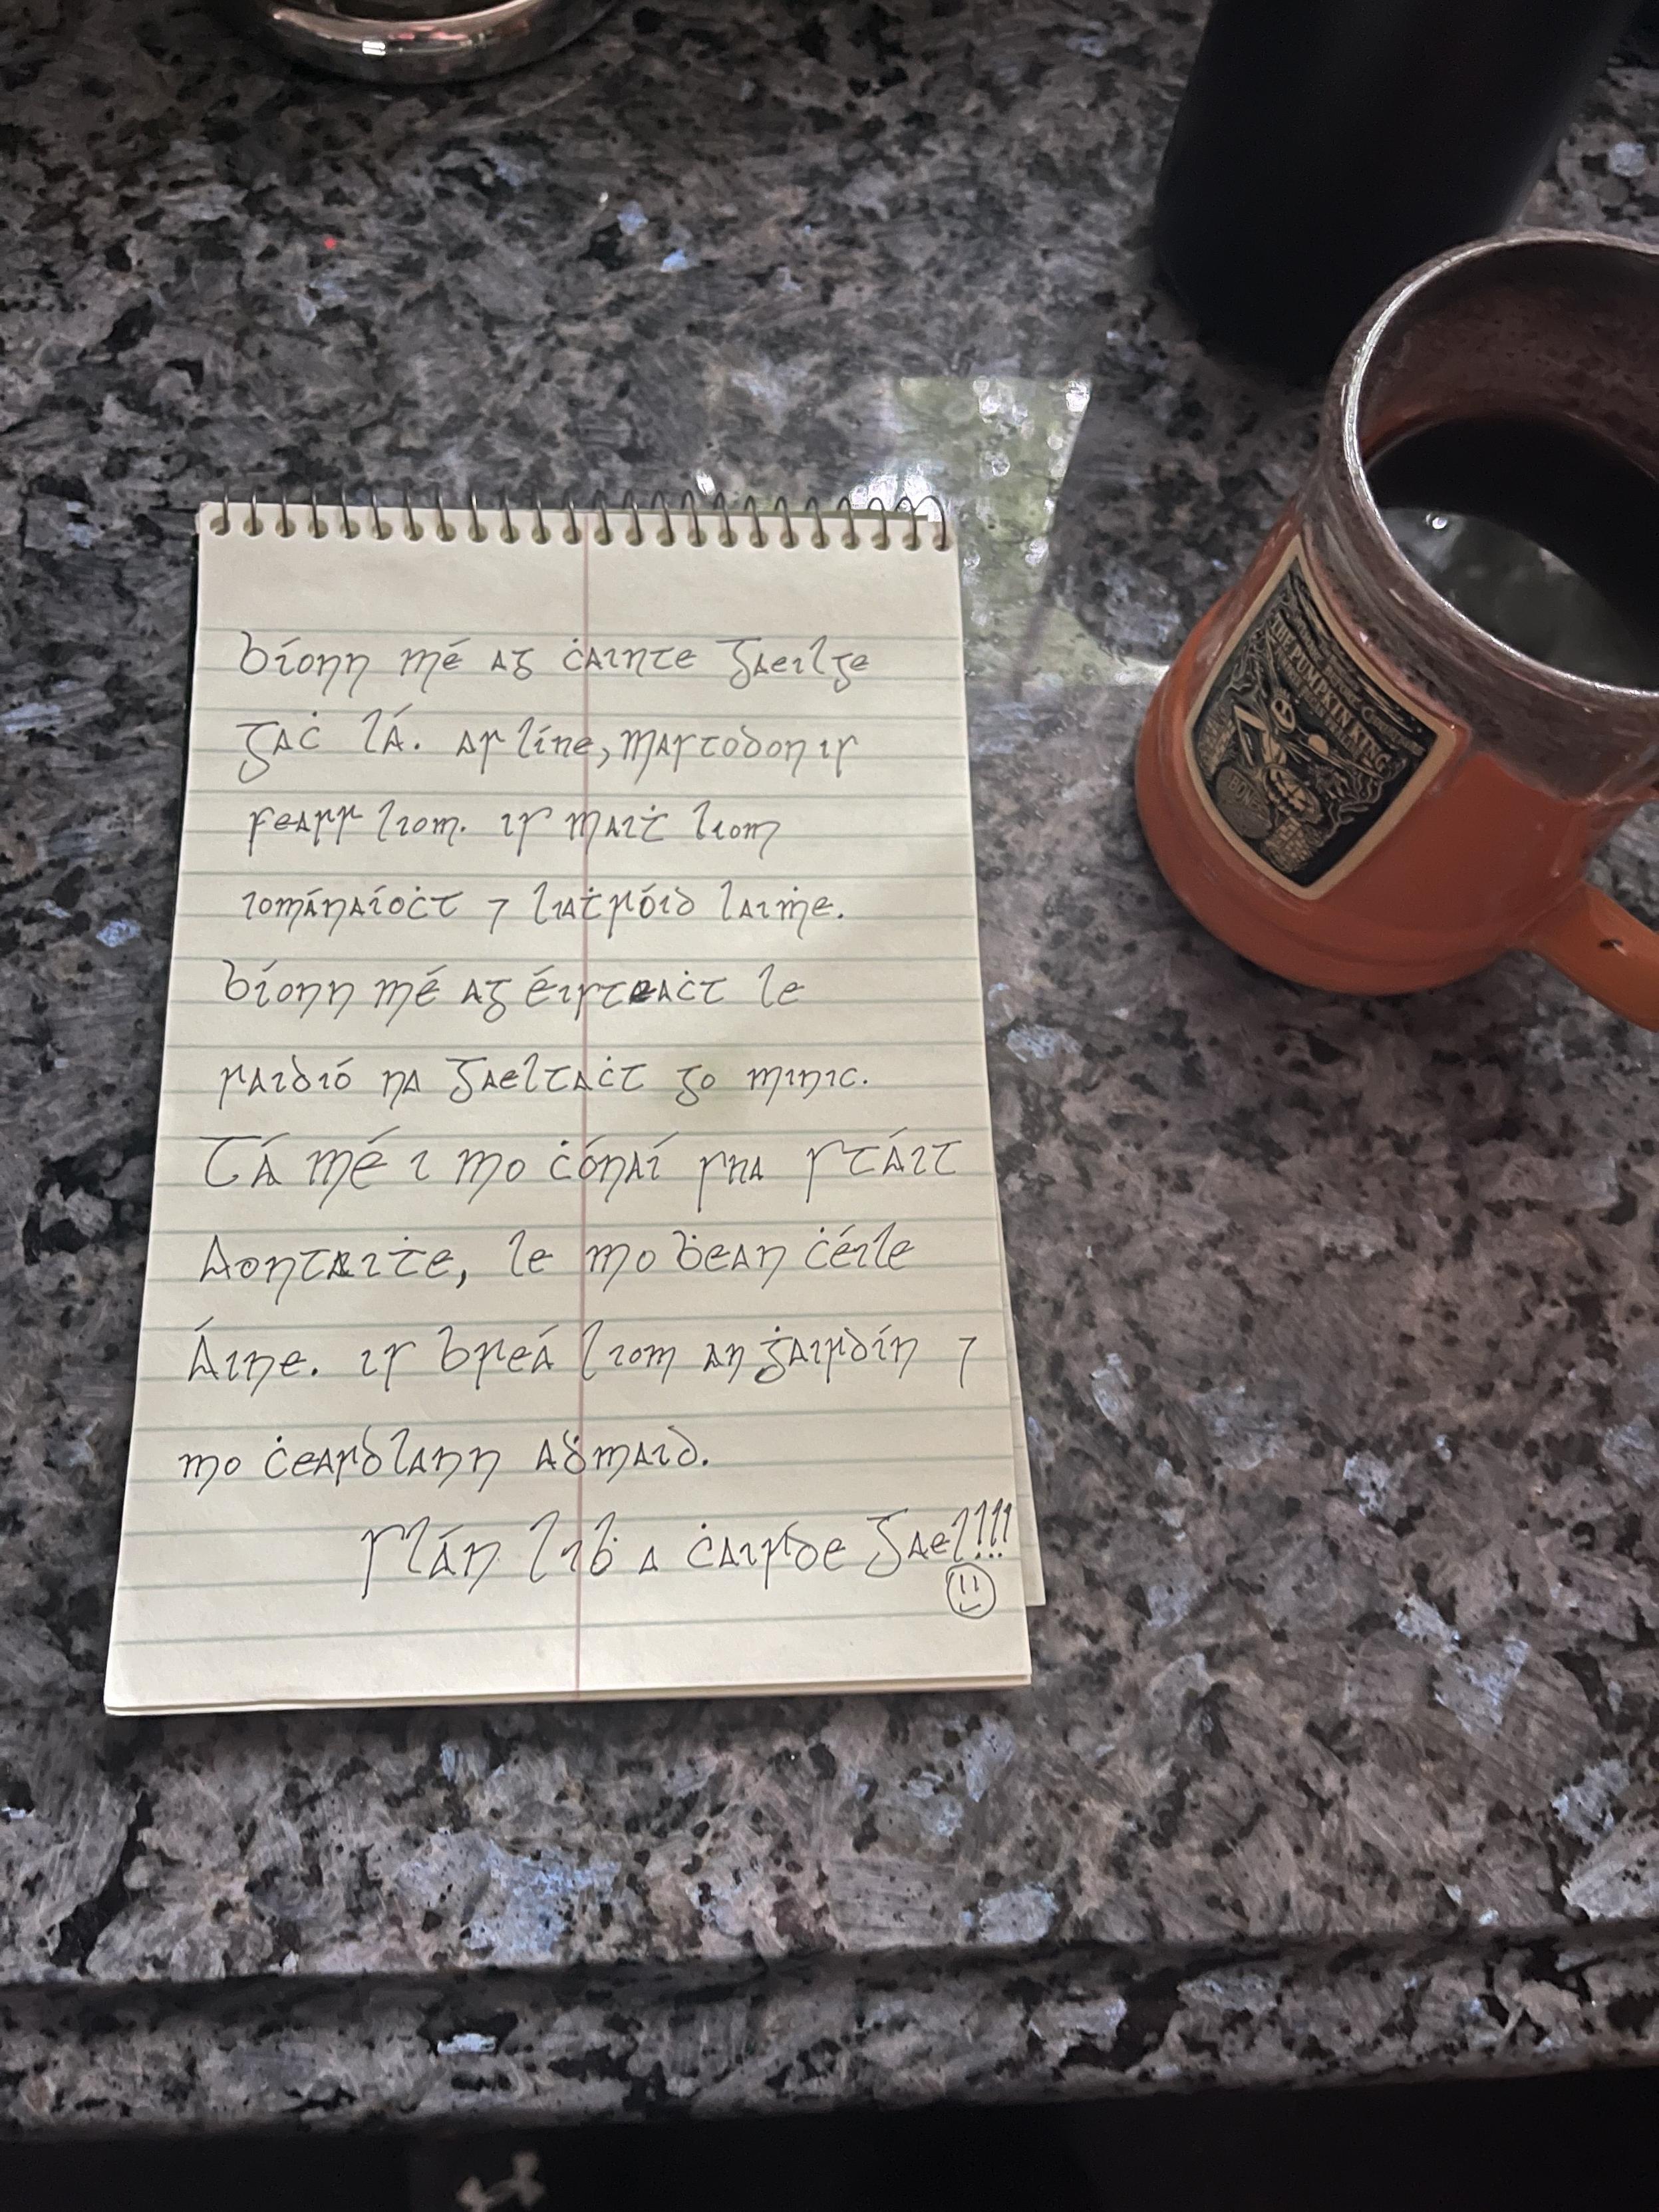 bíonn mé ag ċainte gaeilge
gaċ lá. ar líne, mastodon is
fearr liom. is maiṫ liom
iománaíoċt ⁊ liaṫróid laiṁe.
bíonn mé ag éisteaċt le
raidió na gaeltaċt go minic.
Tá mé i mo ċónaí sna stáit
Aontaiṫe, le mo ḃean ċéile
Áine. is breá liom an ġairdín ⁊
mo ċeardlann aḋmaid.
slán liḃ a ċairde gael!!!
THE PUMPKIN KING